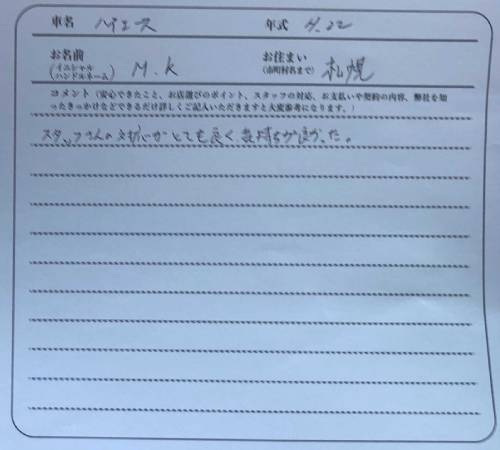 車名 ハイエース 年式 H.22
お名前 (イニシャル ハンドルネーム) M.K お住まい (市町村名まで) 札幌
コメント(安心できたこと、お店選びのポイント、スタッフの対応、お支払いや契約の内容、弊社を知
ったきっかけなどできるだけ詳しくご記入いただきますと大変参考になります。)
スタッフさんの対応がとても良く、気持ちが良かった。